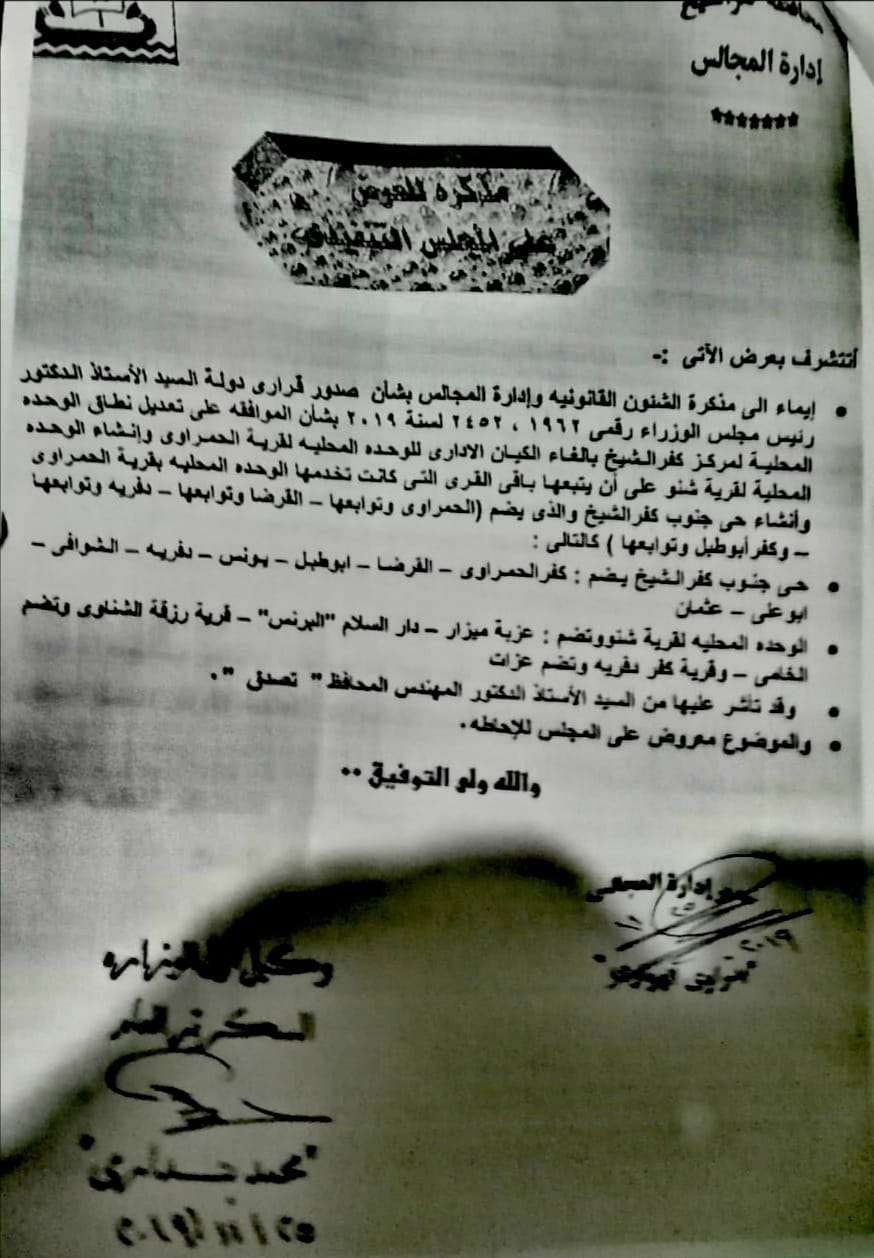 محافظة كفر الشيخ
إدارة المجالس
*******
مذكره للعرض
على المجلس التنفيذى
أتشرف بعرض الآتى :-
• إيماء الى مذكرة الشئون القانونيه وإدارة المجالس بشأن صدور قرارى دولة السيد الأستاذ الدكتور
رئيس مجلس الوزراء رقمى ١٩٦٢ ، ٢٤٥٢ لسنة ٢٠١٩ بشأن الموافقه على تعديل نطاق الوحده
المحلية لمركز كفرالشيخ بالغاء الكيان الادارى للوحده المحليه لقرية الحمراوى وإنشاء الوحده
المحلية لقرية شنو على أن يتبعها باقى القرى التى كانت تخدمها الوحده المحليه بقرية الحمراوى
وأنشاء حى جنوب كفرالشيخ والذى يضم (الحمراوى وتوابعها – القرضا وتوابعها – دفريه وتوابعها
– وكفرأبوطبل وتوابعها ) كالتالى :
• حى جنوب كفرالشيخ يضم : كفرالحمراوى – القرضا – ابوطبل – يونس – دفريه – الشوافى –
ابوعلى – عثمان
• الوحده المحليه لقرية شنووتضم : عزبة ميزار – دار السلام "البرنس" – قرية رزقة الشناوى وتضم
الخامى – وقرية كفر دفريه وتضم عزات
• وقد تأشر عليها من السيد الأستاذ الدكتور المهندس المحافظ " تصدق " .
• والموضوع معروض على المجلس للإحاطه .
والله ولو التوفيق ..
مدير إدارة المجالس
٢٠١٩
وكيل الوزاره
السكرتير العام
"محمد
٢٠١٩/١١/٢٥